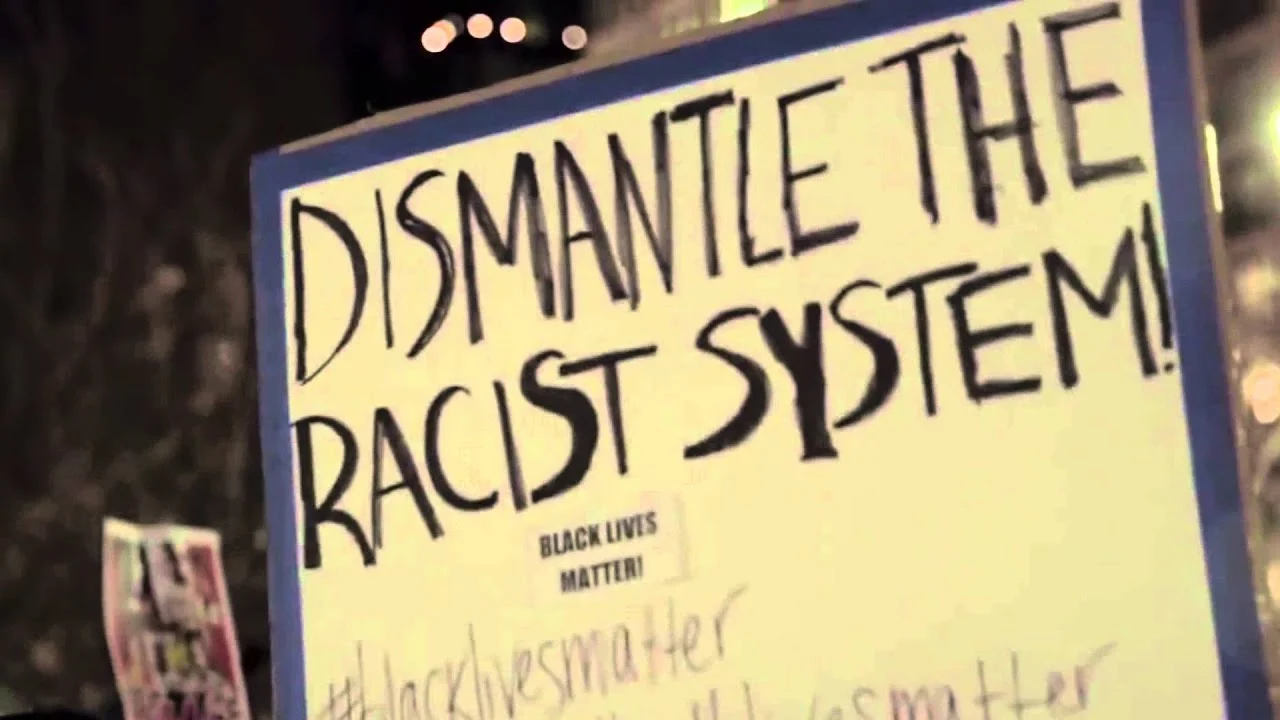 DISMANTLE THE
RACIST SYSTEM!
BLACK LIVES
MATTER!
#blacklivesmatter